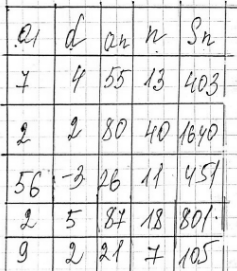 a1 d an n Sn
7 4 55 13 403
2 2 80 40 1640
56 -3 26 11 451
2 5 87 18 801.
9 2 21 7 105